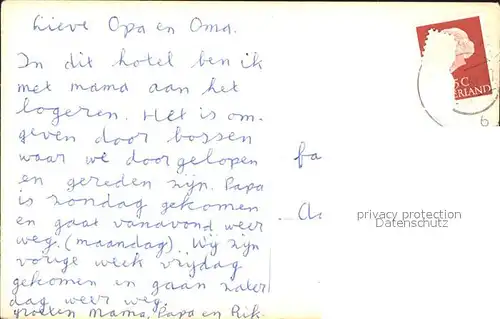 Lieve Opa en Oma.
In dit hotel ben ik
met mama aan het
logeren. Het is om.
geven door bossen
waar we doorgelopen
en gereden zijn. Papa
is zondag gekomen
en gaat vanavond weer
weg. (maandag). Wij zijn
vorige week vrijdag
gekomen en gaan zater
dag weer weg.
groeten Mama, Papa en Rik.
5C
ERLAND
6
fa
privacy protection
Datenschutz